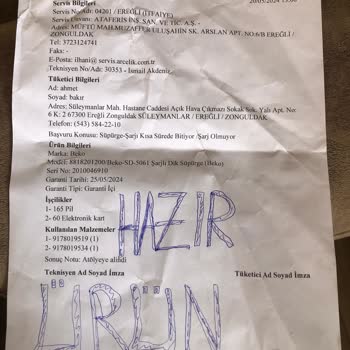 Servis Bilgileri
Servis No/Adı: 04201 / EREĞLİ (İTFAİYE)
Servis Ünvanı: ATAFERİS İNŞ. SAN. VE TİC. A.Ş. -
Adres: MÜFTÜ MAH.MUZAFFER ULUŞAHİN SK. ARSLAN APT. NO:6/B EREĞLİ /
ZONGULDAK
Tel: 3723124741
Faks: -
E-Posta: ilhani@ servis.arcelik.com.tr
Teknisyen No/Adı: 30353 - İsmail Akdeniz
Tüketici Bilgileri
Ad: ahmet
Soyad: bakır
Adres: Süleymanlar Mah. Hastane Caddesi Açık Hava Çıkmazı Sokak Yalı Apt. No:
6 K: 2 67300 Ereğli Zonguldak SÜLEYMANLAR / EREĞLİ / ZONGULDAK
Telefon: (543) 584-22-10
Başvuru Konusu: Süpürge-Şarjı Kısa Sürede Bitiyor /Şarj Olmuyor
Ürün Bilgileri
Marka: Beko
Model: 8818201200/Beko-SD-5061 Şarjlı Dik Süpürge (Beko)
Seri No: 2010046910
Garanti Tarihi: 25/05/2024
Garanti Tipi: Garanti İçi
İşçilikler
1- 165 Pil
2- 60 Elektronik kart
Kullanılan Malzemeler
1- 9178019519 (1)
2- 9178019534 (1)
Sonuç Notu: Atölyeye alındı
HAZIR
Teknisyen Ad Soyad İmza Tüketici Ad Soyad İmza
ÜRÜN